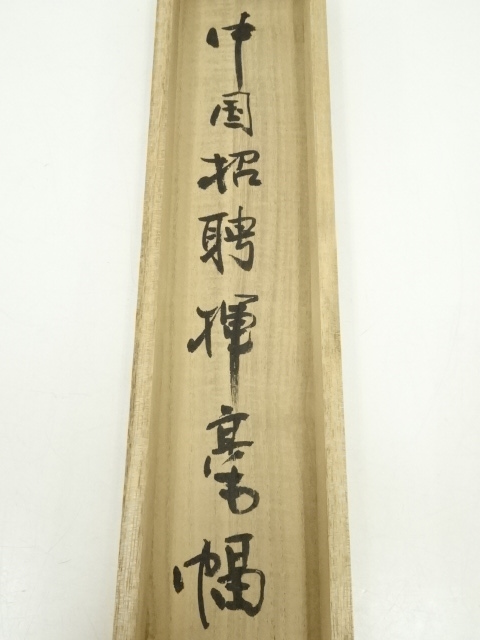 中国招聘揮毫幅